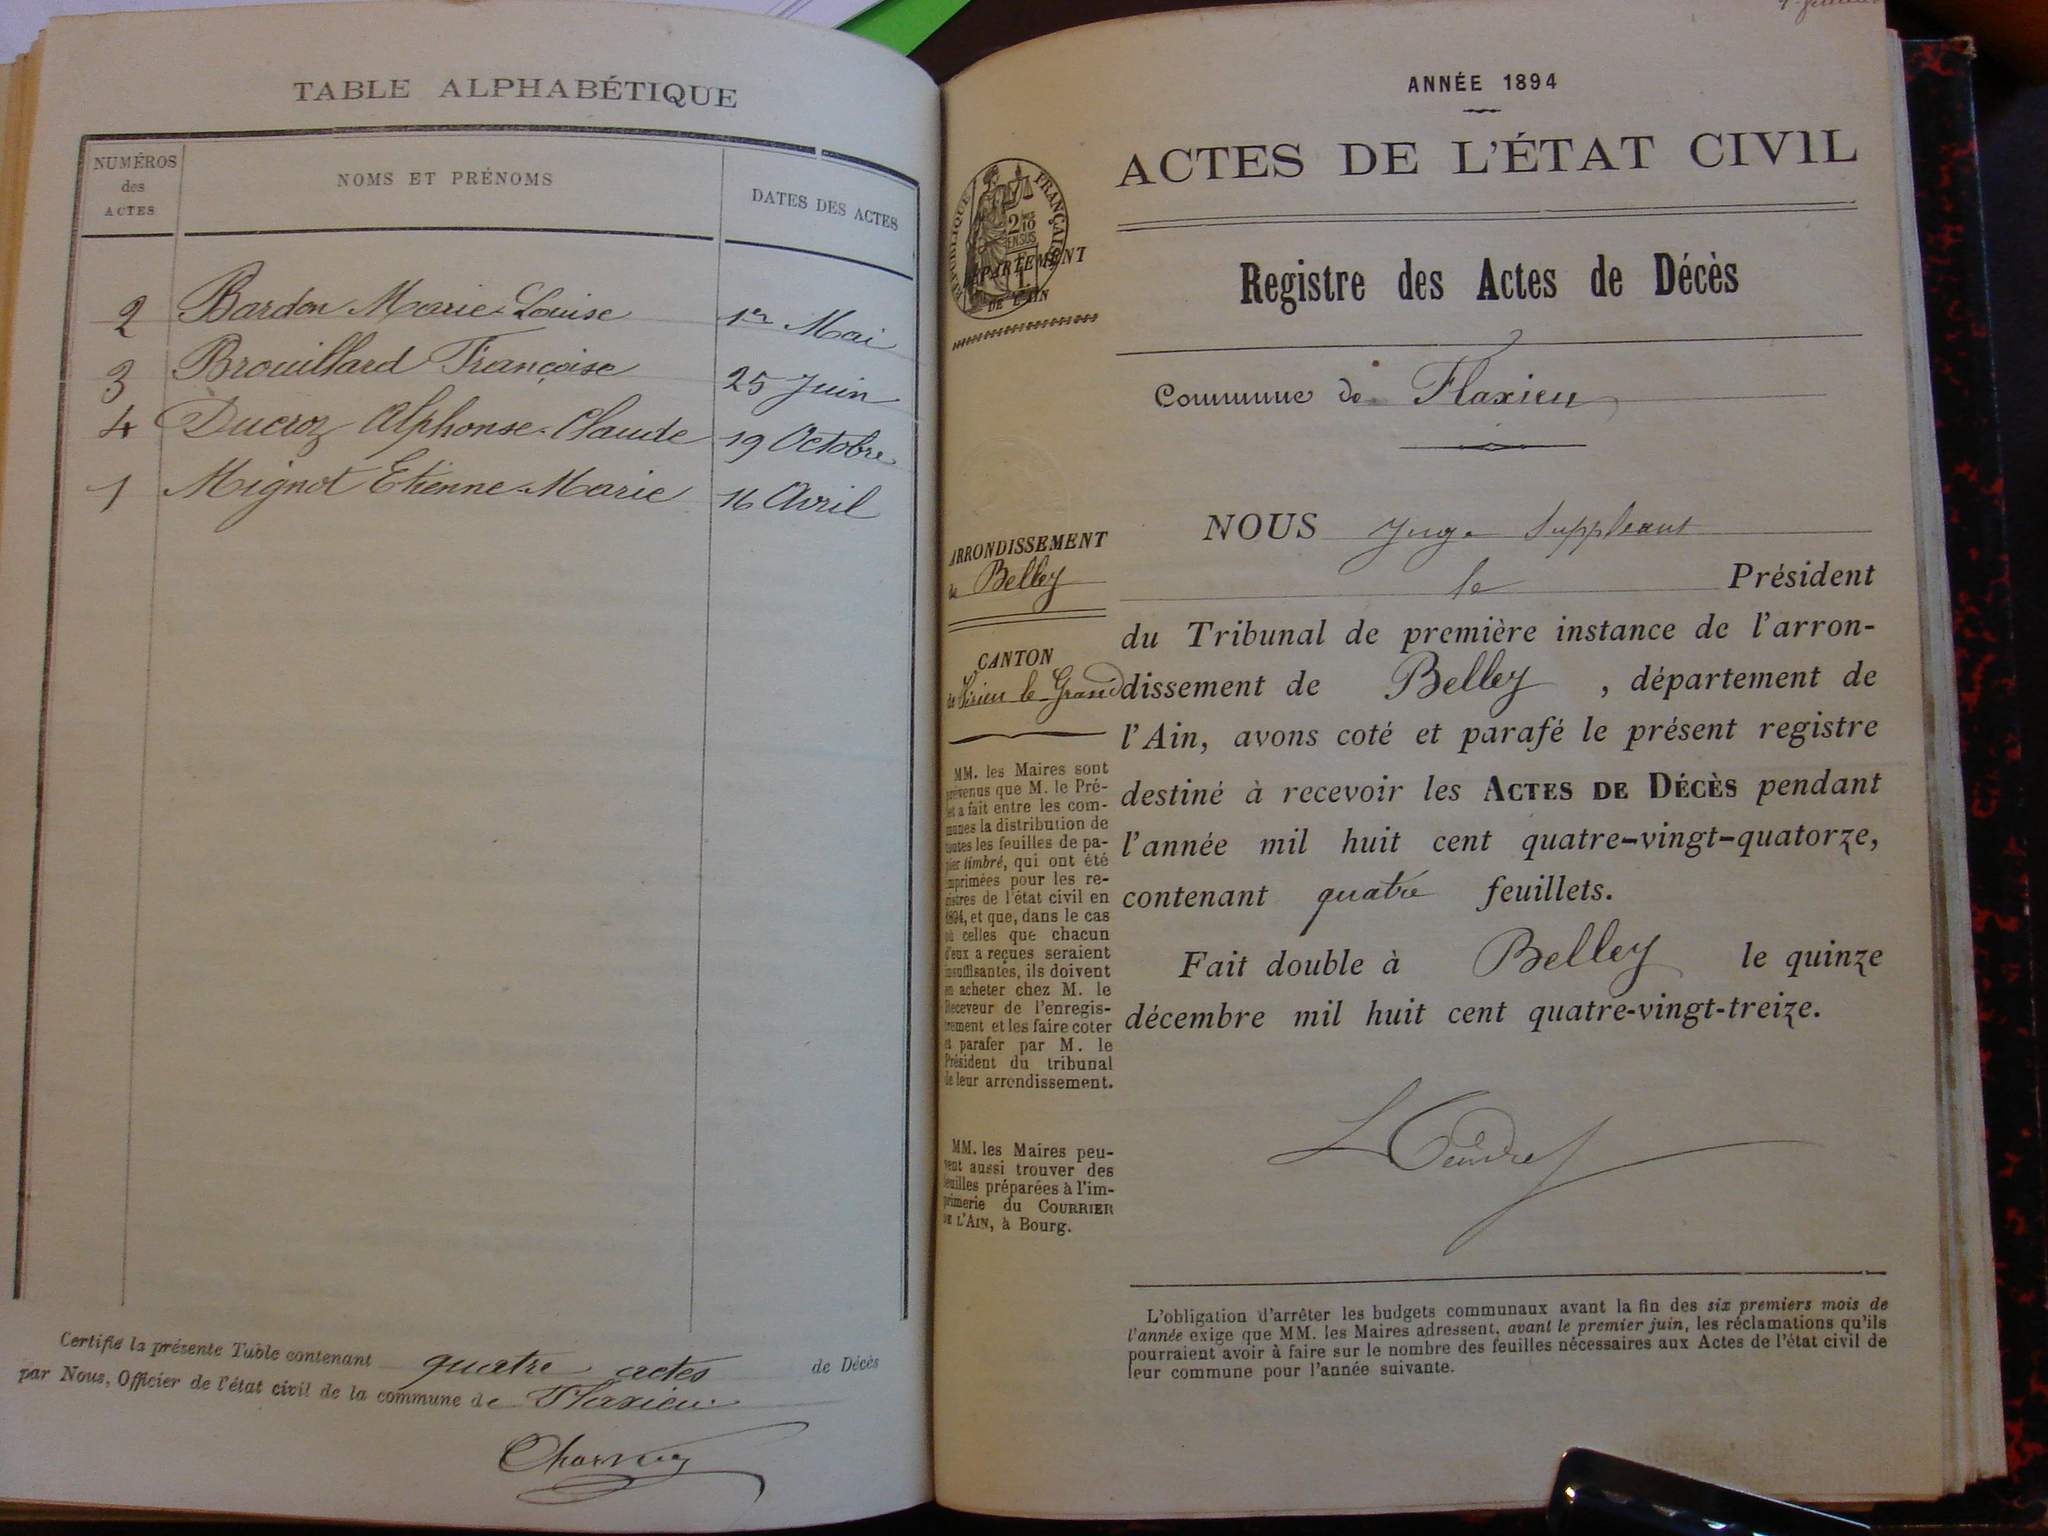 TABLE ALPHABÉTIQUE
NUMÉROS
des
ACTES
NOMS ET PRÉNOMS
DATES DES ACTES
2 Bardon Marie-Louise 1er Mai
3 Brouillard Françoise 25 Juin
4 Ducroz Alphonse-Claude 19 Octobre
1 Mignot Etienne-Marie 16 Avril
Certifié la présente Table contenant quatre actes de Décès
par Nous, Officier de l'état civil de la commune de Flaxieu
ANNÉE 1894
ACTES DE L'ÉTAT CIVIL
RÉPUBLIQUE FRANÇAISE
2/10
EN SUS
DÉPARTEMENT
DE L'AIN
Registre des Actes de Décès
Commune de Flaxieu
ARRONDISSEMENT
de Belley
CANTON
de Virieu le Grand
MM. les Maires sont
prévenus que M. le Pré-
fet a fait entre les com-
munes la distribution de
toutes les feuilles de pa-
pier timbré, qui ont été
imprimées pour les re-
gistres de l'état civil en
1894, et que, dans le cas
où celles que chacun
d'eux a reçues seraient
insuffisantes, ils doivent
en acheter chez M. le
Receveur de l'enregis-
trement et les faire coter
et parafer par M. le
Président du tribunal
de leur arrondissement.
MM. les Maires peu-
vent aussi trouver des
feuilles préparées à l'im-
primerie du COURRIER
DE L'AIN, à Bourg.
NOUS Juge Suppléant
le Président
du Tribunal de première instance de l'arron-
dissement de Belley, département de
l'Ain, avons coté et parafé le présent registre
destiné à recevoir les ACTES DE DÉCÈS pendant
l'année mil huit cent quatre-vingt-quatorze,
contenant quatre feuillets.
Fait double à Belley le quinze
décembre mil huit cent quatre-vingt-treize.
L'obligation d'arrêter les budgets communaux avant la fin des six premiers mois de
l'année exige que MM. les Maires adressent, avant le premier juin, les réclamations qu'ils
pourraient avoir à faire sur le nombre des feuilles nécessaires aux Actes de l'état civil de
leur commune pour l'année suivante.